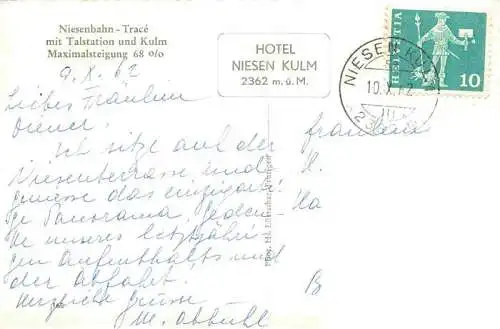 Niesenbahn - Tracé
mit Talstation und Kulm
Maximalsteigung 68 o/o
HOTEL
NIESEN KULM
2362 m. ü. M.
HELVETIA
10
NIESEN KULM
10.X.62
9. X. 62
Liebes Fräulein
Diener.
Ich sitze auf der
Niesenterrasse und
geniesse das einzigarti
ge Panorama, geden-
ke unseres letztjähri
gen Aufenthalts und
der Abfahrt.
Herzliche Grüsse
M.
Fräulein
H.
Ha
B
Phot. Hs.